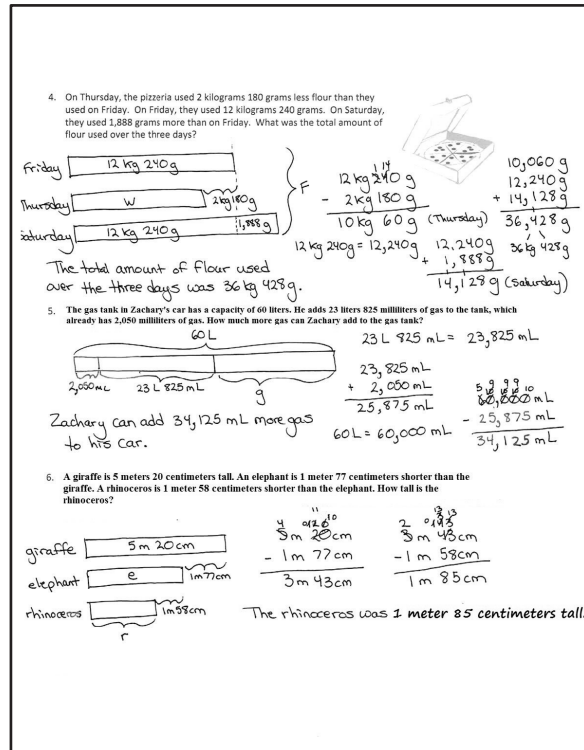 4. On Thursday, the pizzeria used 2 kilograms 180 grams less flour than they
used on Friday. On Friday, they used 12 kilograms 240 grams. On Saturday,
they used 1,888 grams more than on Friday. What was the total amount of
flour used over the three days?
Friday 12 kg 240 g
Thursday w 2 kg 180 g
Saturday 12 kg 240 g 1,888 g
F
1 14
12 kg 240 g
- 2 kg 180 g
10 kg 60 g (Thursday)
12 kg 240g = 12,240g
12,240g
+ 1,888g
14,128 g (Saturday)
10,060 g
12,240 g
+ 14,128 g
36,428 g
36 kg 428 g
The total amount of flour used
over the three days was 36 kg 428 g.
5. The gas tank in Zachary's car has a capacity of 60 liters. He adds 23 liters 825 milliliters of gas to the tank, which
already has 2,050 milliliters of gas. How much more gas can Zachary add to the gas tank?
60 L
2,050 mL 23 L 825 mL g
23 L 825 mL = 23,825 mL
23,825 mL
+ 2,050 mL
25,875 mL
60 L = 60,000 mL
5 9 9 9 10
60,000 mL
- 25,875 mL
34,125 mL
Zachary can add 34,125 mL more gas
to his car.
6. A giraffe is 5 meters 20 centimeters tall. An elephant is 1 meter 77 centimeters shorter than the
giraffe. A rhinoceros is 1 meter 58 centimeters shorter than the elephant. How tall is the
rhinoceros?
giraffe 5 m 20 cm
elephant e 1m 77cm
rhinoceros 1m 58cm
r
11
4 12 10
5m 20cm
- 1m 77cm
3m 43cm
13
2 13
3m 43cm
- 1m 58cm
1m 85cm
The rhinoceros was 1 meter 85 centimeters tall.